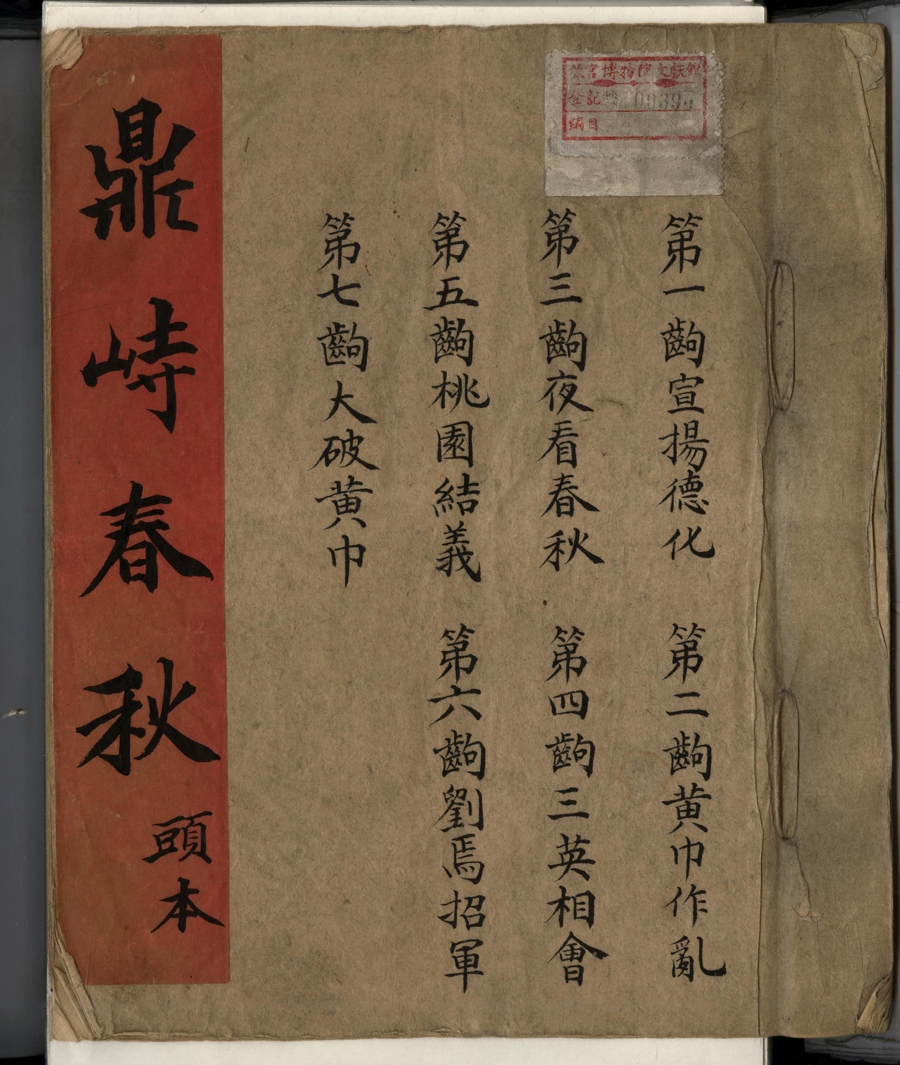 故宮博物院文獻館
登記
第一齣宣揚德化
第二齣黄巾作亂
第三齣夜看春秋
第四齣三英相會
第五齣桃園結義
第六齣劉焉招軍
第七齣大破黄巾
鼎峙春秋
頭本